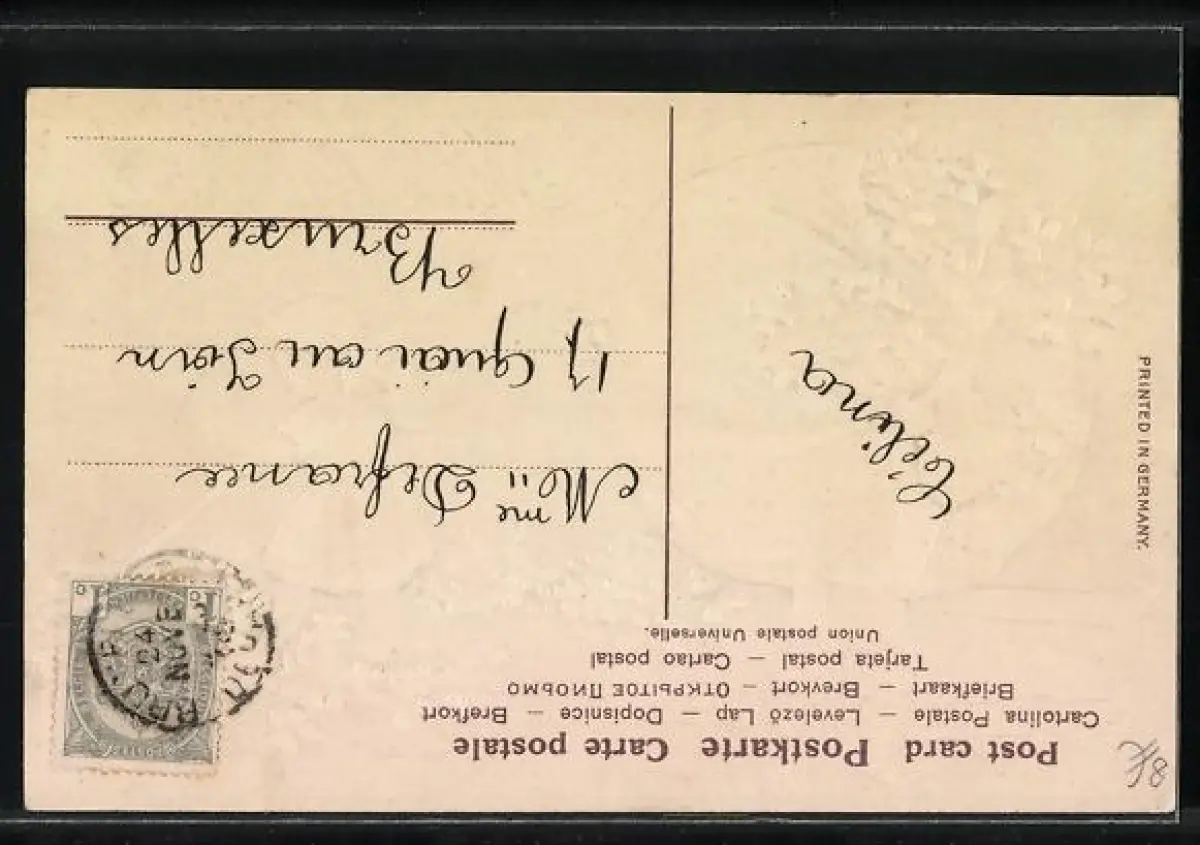 Post card Postkarte Carte postale
Cartolina Postale — Levelező Lap — Dopisnice — Brefkort
Briefkaart — Brevkort — ОТКРЫТОЕ ПИСЬМО
Tarjeta postal — Cartao postal
Union postale Universelle.
PRINTED IN GERMANY.
Célina
Mme Defrance
17 Quai au Foin
Bruxelles
24
NOVE
1
1